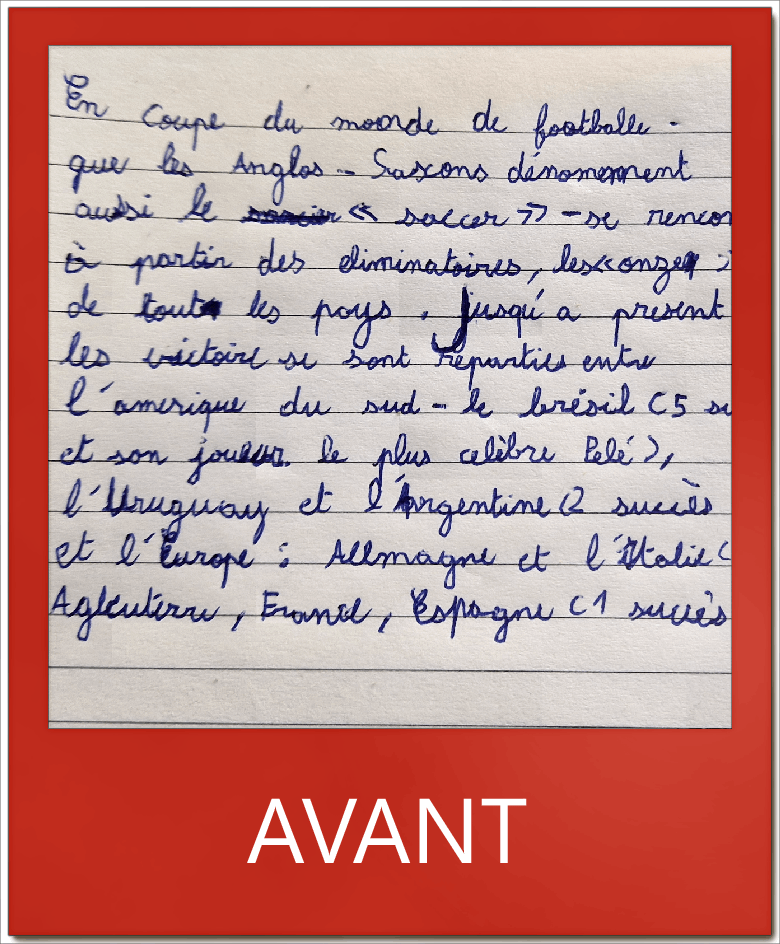 En Coupe du moonde de footballe -
que les Anglos - Saxcons dénomemnent
aussi le « soccer » - se rencon
à partir des eliminatoires, les «onze
de tout les pays . Jusqu'a present
les victoire se sont réparties entre
l'amerique du sud - le brésil (5 su
et son joueur le plus celèbre Pelé),
l'Uruguay et l'Argentine (2 succès
et l'Europe : Allmagne et l'Italie (
Agleuterre, France, Espagne (1 succès
AVANT